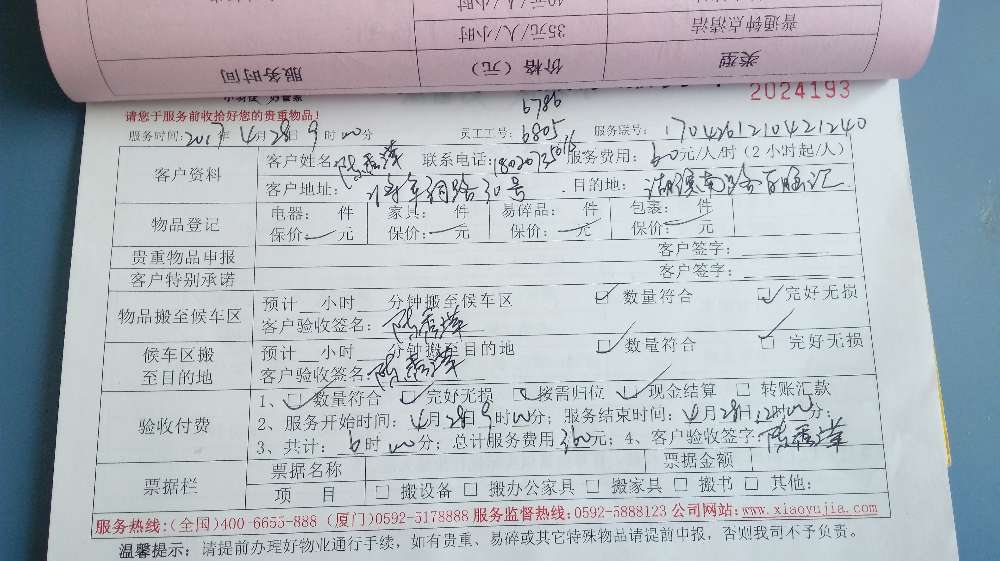 40元/人/小时
普通钟点清洁 35元/人/小时
类型 价格（元） 服务时间
2024193
请您于服务前收拾好您的贵重物品！
6786
服务时间：2017年4月28日9时00分 员工工号：6805 服务联号：170426121042 1240
客户资料
客户姓名： 联系电话： 服务费用：60元/人/时（2小时起/人）
客户地址： 30号 目的地：湖滨南路百脑汇
物品登记
电器： 件 家具： 件 易碎品： 件 包裹： 件
保价： 元 保价： 元 保价： 元 保价： 元
贵重物品申报 客户签字：
客户特别承诺 客户签字：
物品搬至候车区
预计__小时__分钟搬至候车区 □ 数量符合 □ 完好无损
客户验收签名：
候车区搬
至目的地
预计__小时__分钟搬至目的地 □ 数量符合 □ 完好无损
客户验收签名：
验收付费
1、□ 数量符合 □ 完好无损 □ 按需归位 □ 现金结算 □ 转账汇款
2、服务开始时间：4月28日9时00分；服务结束时间：4月28日12时00分；
3、共计：6时00分；总计服务费用360元；4、客户验收签字：
票据栏
票据名称 票据金额
项 目 □ 搬设备 □ 搬办公家具 □ 搬家具 □ 搬书 □ 其他：
服务热线：(全国)400-6655-888 (厦门)0592-5178888 服务监督热线：0592-5888123 公司网站：www.xiaoyujia.com
温馨提示：请提前办理好物业通行手续，如有贵重、易碎或其它特殊物品请提前申报，否则我司不予负责。